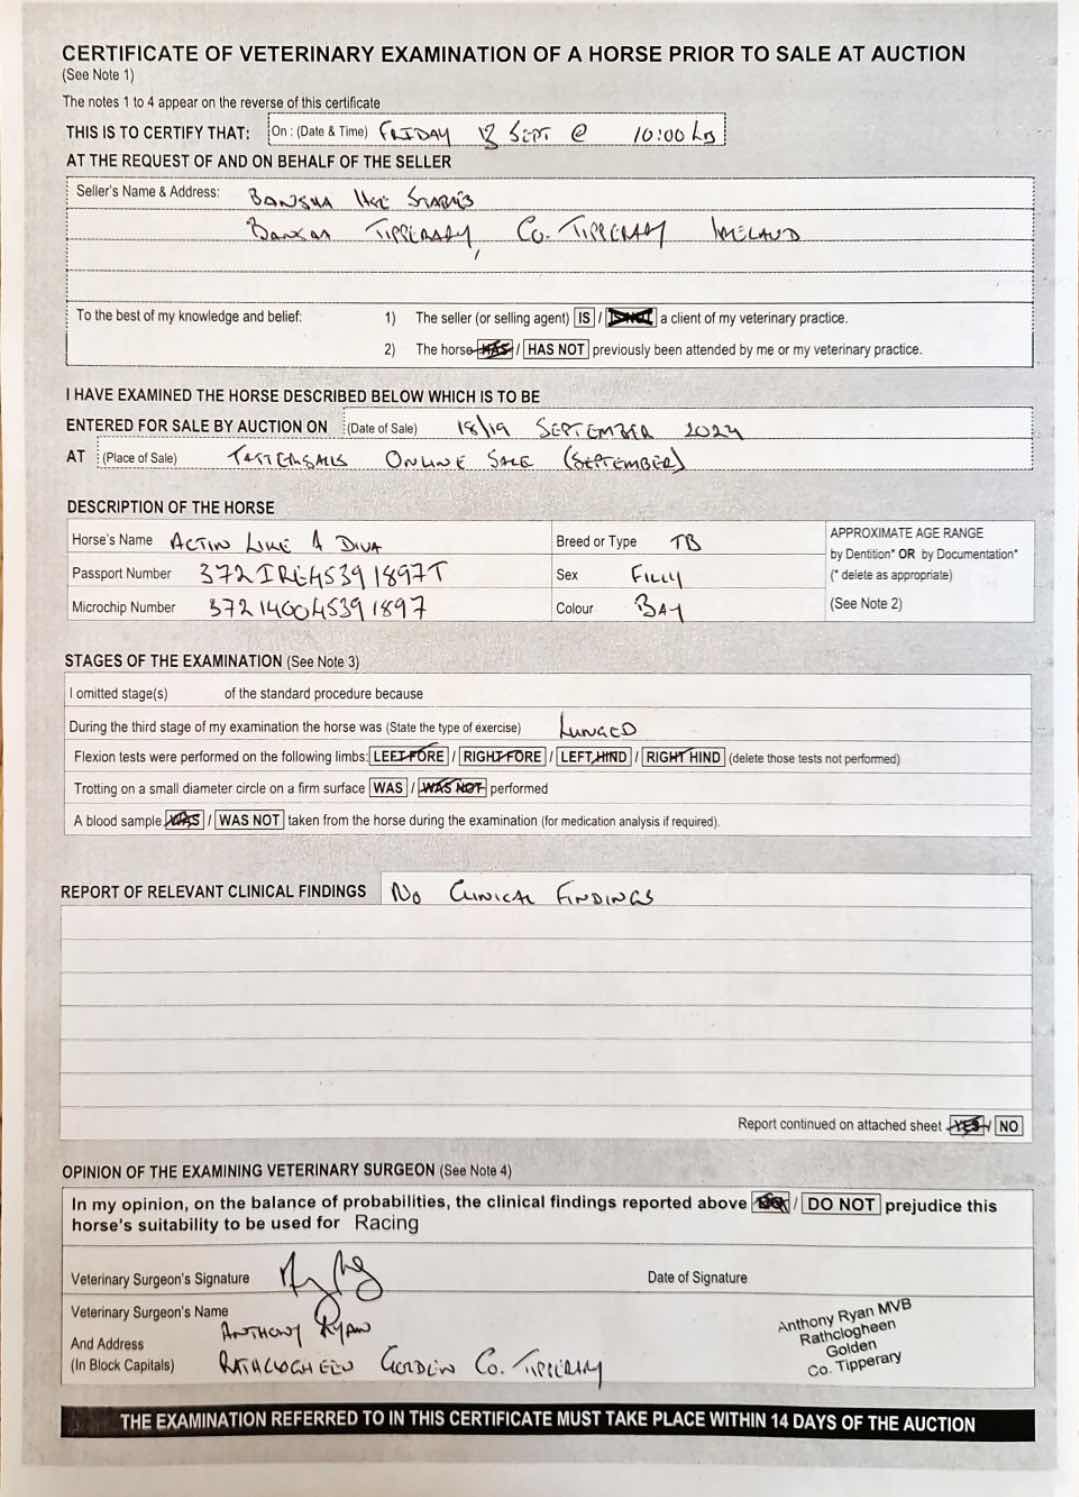 CERTIFICATE OF VETERINARY EXAMINATION OF A HORSE PRIOR TO SALE AT AUCTION
(See Note 1)
The notes 1 to 4 appear on the reverse of this certificate
THIS IS TO CERTIFY THAT: On : (Date & Time) FRIDAY 13 SEPT @ 10:00 hrs
AT THE REQUEST OF AND ON BEHALF OF THE SELLER
Seller's Name & Address: BANSHA STABLES
BANSHA TIPPERARY, CO. TIPPERARY IRELAND
To the best of my knowledge and belief: 1) The seller (or selling agent) IS / IS NOT a client of my veterinary practice.
2) The horse HAS / HAS NOT previously been attended by me or my veterinary practice.
I HAVE EXAMINED THE HORSE DESCRIBED BELOW WHICH IS TO BE
ENTERED FOR SALE BY AUCTION ON (Date of Sale) 18/19 SEPTEMBER 2024
AT (Place of Sale) TATTERSALLS ONLINE SALE (SEPTEMBER)
DESCRIPTION OF THE HORSE
Horse's Name ACTIN LIKE A DIVA Breed or Type TB APPROXIMATE AGE RANGE
by Dentition* OR by Documentation*
Passport Number 372IRE45391897T Sex FILLY (* delete as appropriate)
Microchip Number 372140045391897 Colour BAY (See Note 2)
STAGES OF THE EXAMINATION (See Note 3)
I omitted stage(s) of the standard procedure because
During the third stage of my examination the horse was (State the type of exercise) LUNGED
Flexion tests were performed on the following limbs: LEFT FORE / RIGHT FORE / LEFT HIND / RIGHT HIND (delete those tests not performed)
Trotting on a small diameter circle on a firm surface WAS / WAS NOT performed
A blood sample WAS / WAS NOT taken from the horse during the examination (for medication analysis if required).
REPORT OF RELEVANT CLINICAL FINDINGS NO CLINICAL FINDINGS
Report continued on attached sheet YES / NO
OPINION OF THE EXAMINING VETERINARY SURGEON (See Note 4)
In my opinion, on the balance of probabilities, the clinical findings reported above DO / DO NOT prejudice this
horse's suitability to be used for Racing
Veterinary Surgeon's Signature Date of Signature
Veterinary Surgeon's Name ANTHONY RYAN
And Address
(In Block Capitals) RATHCLOGHEEN GOLDEN CO. TIPPERARY
Anthony Ryan MVB
Rathclogheen
Golden
Co. Tipperary
THE EXAMINATION REFERRED TO IN THIS CERTIFICATE MUST TAKE PLACE WITHIN 14 DAYS OF THE AUCTION